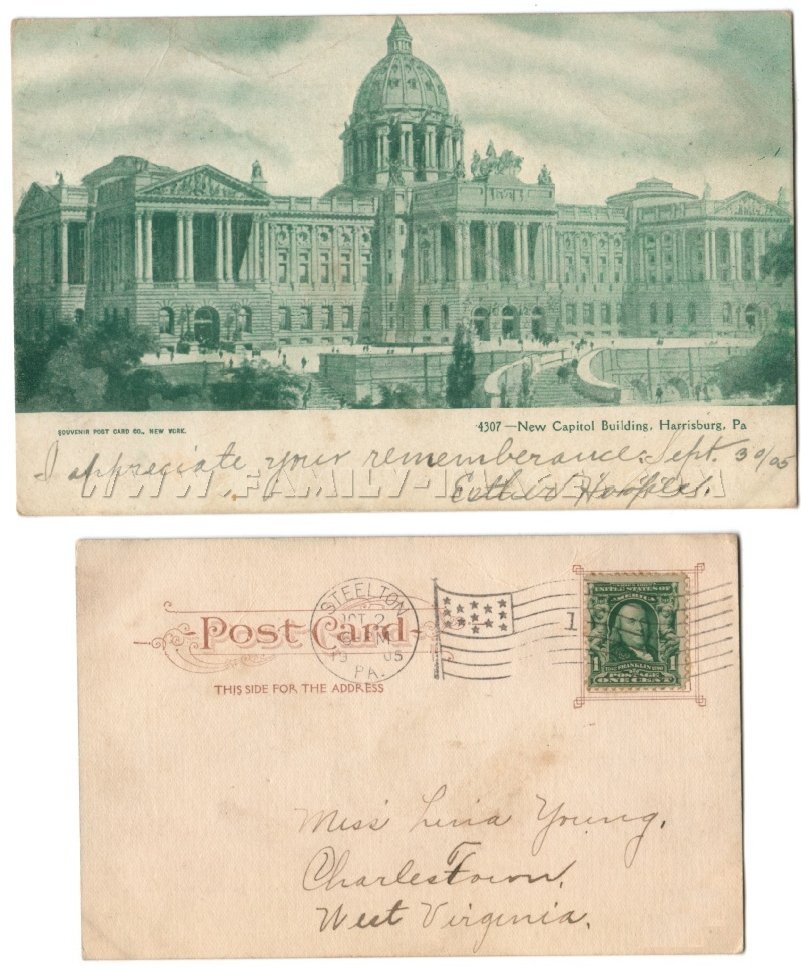 SOUVENIR POST CARD CO., NEW YORK.
4307—New Capitol Building, Harrisburg, Pa
I appreciate your rememberance. Sept. 30/05
Esther
WWW.FAMILY-IMAGES.COM
Post Card
THIS SIDE FOR THE ADDRESS
STEELTON
OCT 2
M
19 05
PA.
1
UNITED STATES OF
AMERICA
1 FRANKLIN 1
POSTAGE
ONE CENT
Miss Young,
Charles Town,
West Virginia.